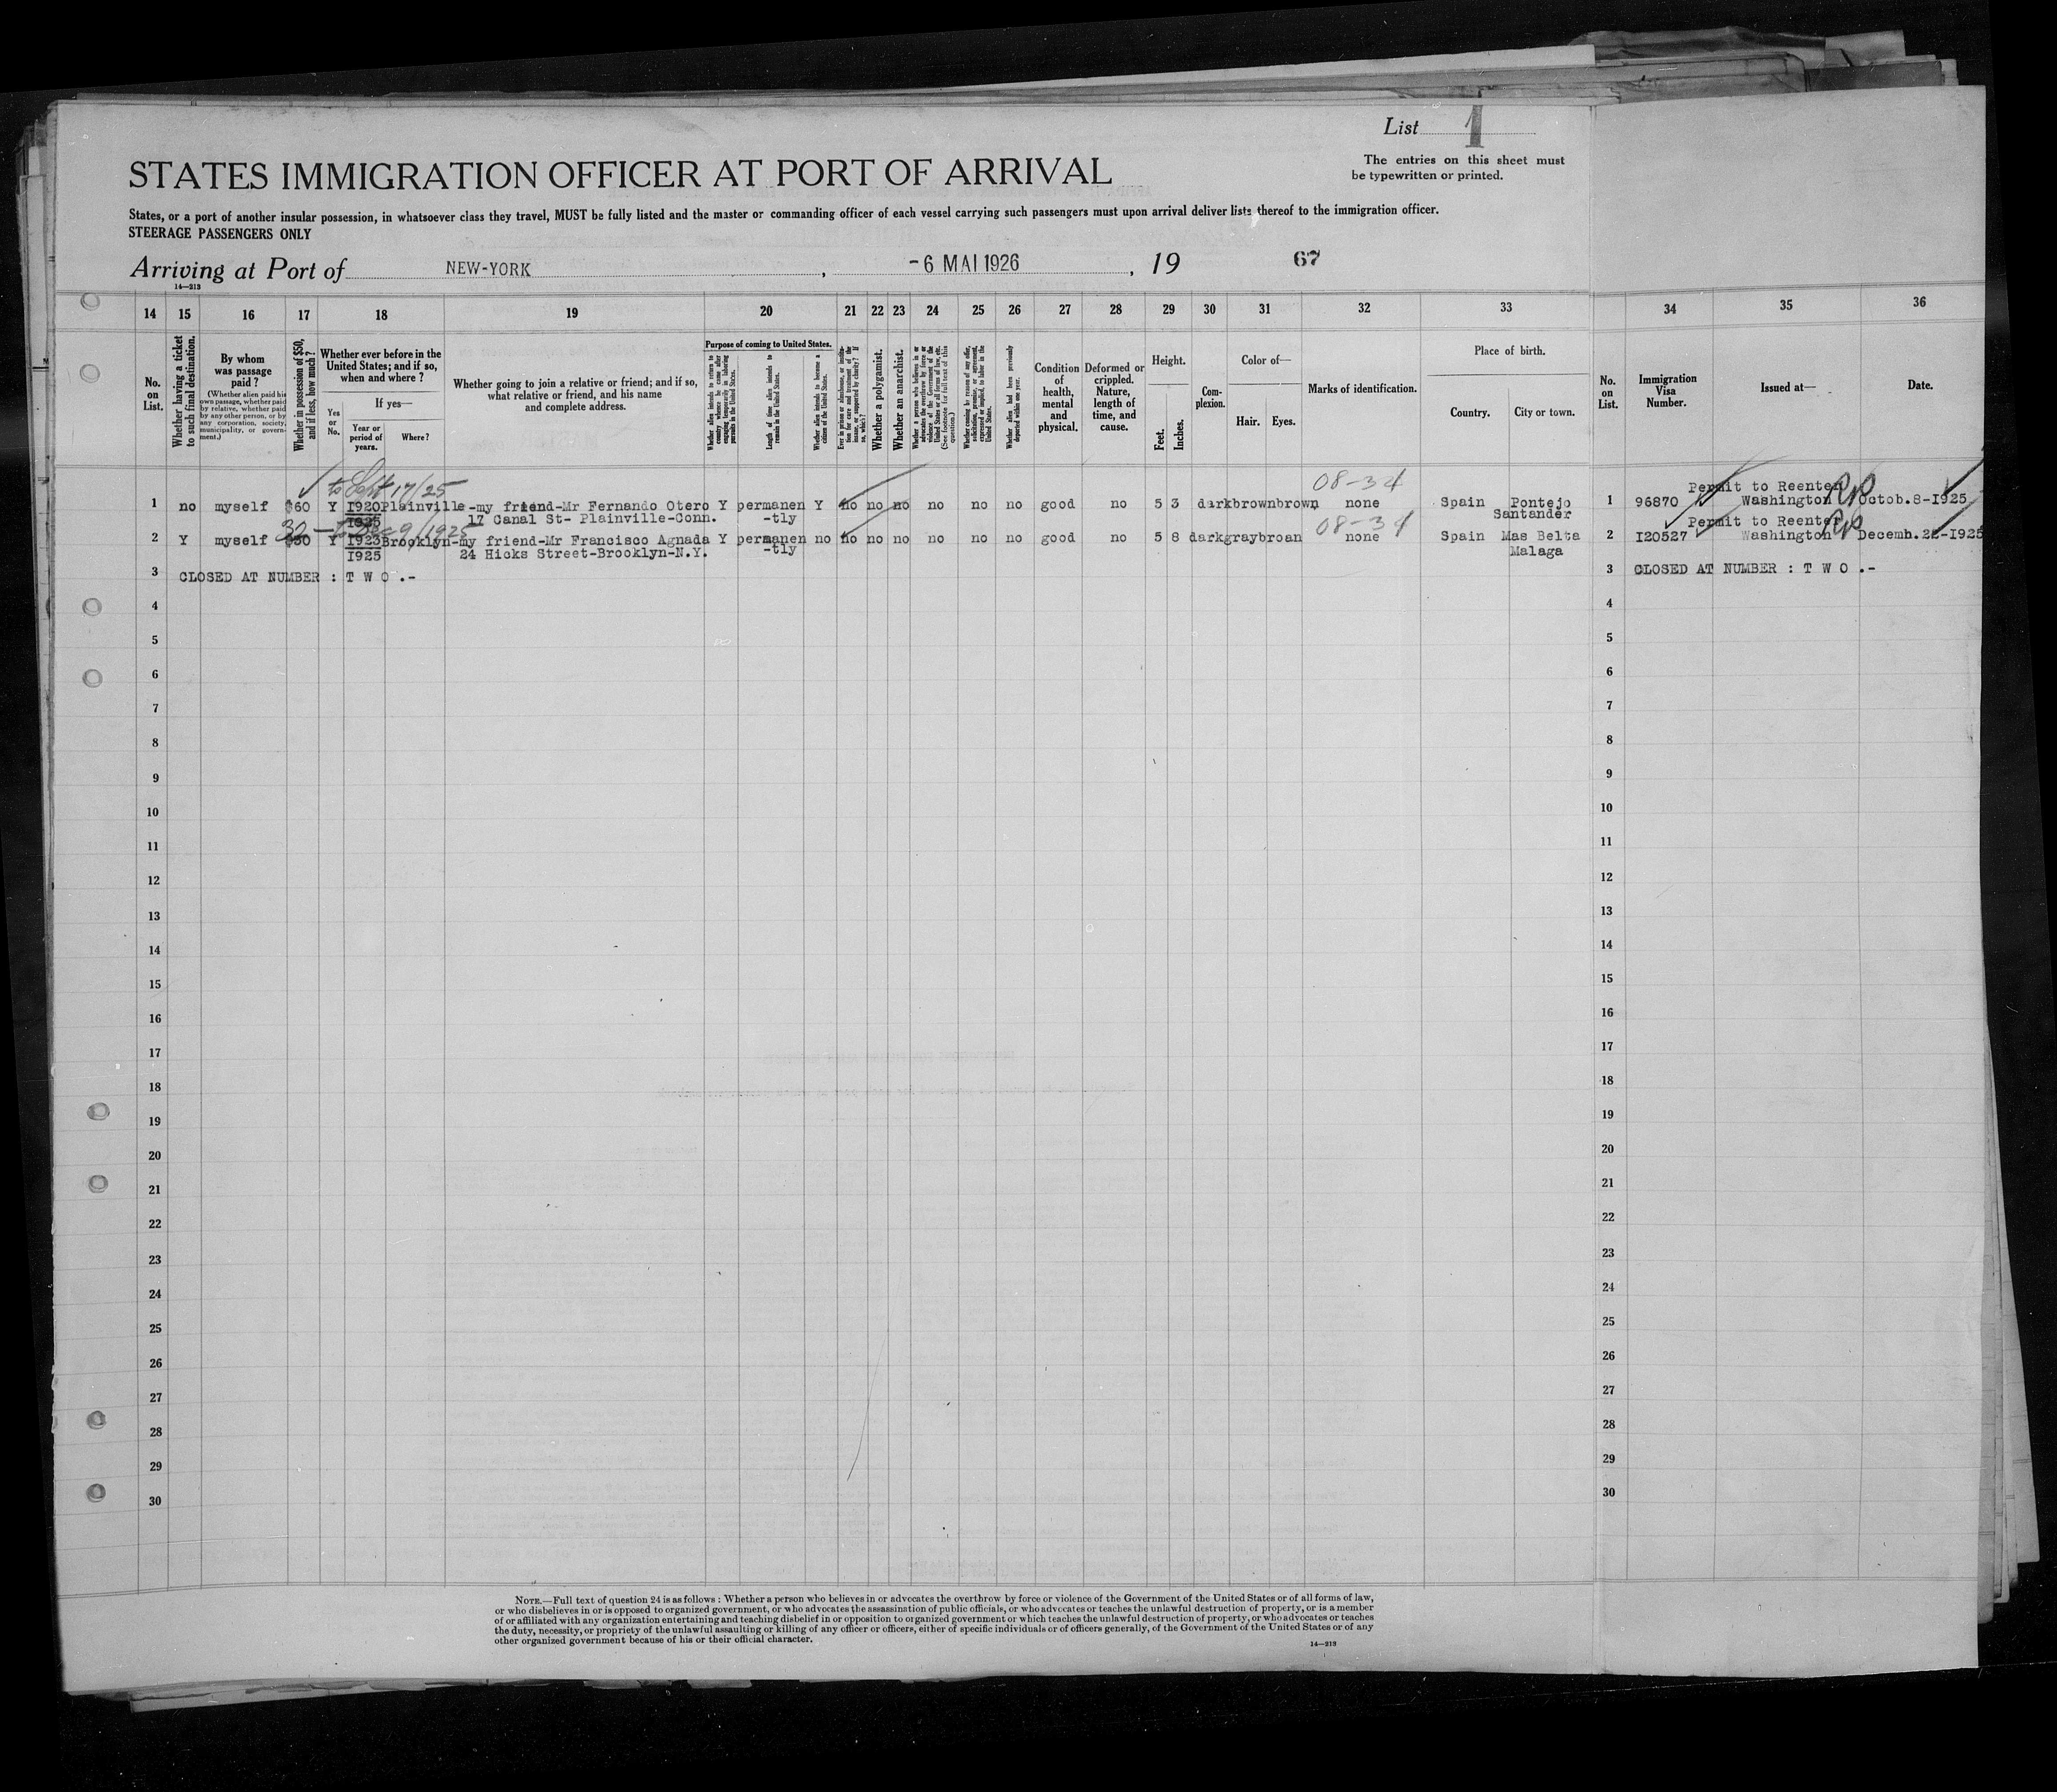 List 1
The entries on this sheet must
be typewritten or printed.
STATES IMMIGRATION OFFICER AT PORT OF ARRIVAL
States, or a port of another insular possession, in whatsoever class they travel, MUST be fully listed and the master or commanding officer of each vessel carrying such passengers must upon arrival deliver lists thereof to the immigration officer.
STEERAGE PASSENGERS ONLY
Arriving at Port of NEW-YORK , -6 MAI 1926 , 19 67
14—213
14 15 16 17 18 19 20 21 22 23 24 25 26 27 28 29 30 31 32 33 34 35 36
No. on List.
Whether having a ticket to such final destination.
By whom was passage paid?
(Whether alien paid his own passage, whether paid by relative, whether paid by any other person, or by any corporation, society, municipality, or government.)
Whether in possession of $50, and if less, how much?
Whether ever before in the United States; and if so, when and where?
Yes or No.
If yes—
Year or period of years.
Where?
Whether going to join a relative or friend; and if so, what relative or friend, and his name and complete address.
Purpose of coming to United States.
Whether alien intends to return to country whence he came after engaging temporarily in laboring pursuits in the United States.
Length of time alien intends to remain in the United States.
Whether alien intends to become a citizen of the United States.
Ever in prison or almshouse, or institution for care and treatment of the insane, or supported by charity? If so, which?
Whether a polygamist.
Whether an anarchist.
Whether a person who believes in or advocates the overthrow by force or violence of the Government of the United States or all forms of law, etc. (See footnote for full text of this question.)
Whether coming by reason of any offer, solicitation, promise, or agreement, expressed or implied, to labor in the United States.
Whether alien had been previously deported within one year.
Condition of health, mental and physical.
Deformed or crippled. Nature, length of time, and cause.
Height.
Feet.
Inches.
Complexion.
Color of—
Hair.
Eyes.
Marks of identification.
Place of birth.
Country.
City or town.
No. on List.
Immigration Visa Number.
Issued at—
Date.
to Sept 17/25 08-34 Permit to Reenter
1 no myself $60 Y I920 Plainville -my friend-Mr Fernando Otero Y permanen Y no no no no no no good no 5 3 dark brown brown none Spain Pontejo 1 96870 Washington Octob.8-I925
1925 17 Canal St- Plainville-Conn. -tly Santander
30 to Dec 9/1925 08-34 Permit to Reenter
2 Y myself $30 Y I923 Brooklyn-my friend-Mr Francisco Agnada Y permanen no no no no no no no good no 5 8 dark gray broan none Spain Mas Belta 2 I20527 Washington Decemb.22-I925
I925 24 Hicks Street-Brooklyn-N.Y. -tly Malaga
3 CLOSED AT NUMBER : T W O .- 3 CLOSED AT NUMBER : T W O .-
4 4
5 5
6 6
7 7
8 8
9 9
10 10
11 11
12 12
13 13
14 14
15 15
16 16
17 17
18 18
19 19
20 20
21 21
22 22
23 23
24 24
25 25
26 26
27 27
28 28
29 29
30 30
NOTE.—Full text of question 24 is as follows: Whether a person who believes in or advocates the overthrow by force or violence of the Government of the United States or of all forms of law,
or who disbelieves in or is opposed to organized government, or who advocates the assassination of public officials, or who advocates or teaches the unlawful destruction of property, or is a member
of or affiliated with any organization entertaining and teaching disbelief in or opposition to organized government or which teaches the unlawful destruction of property, or who advocates or teaches
the duty, necessity, or propriety of the unlawful assaulting or killing of any officer or officers, either of specific individuals or of officers generally, of the Government of the United States or of any
other organized government because of his or their official character.
14—213